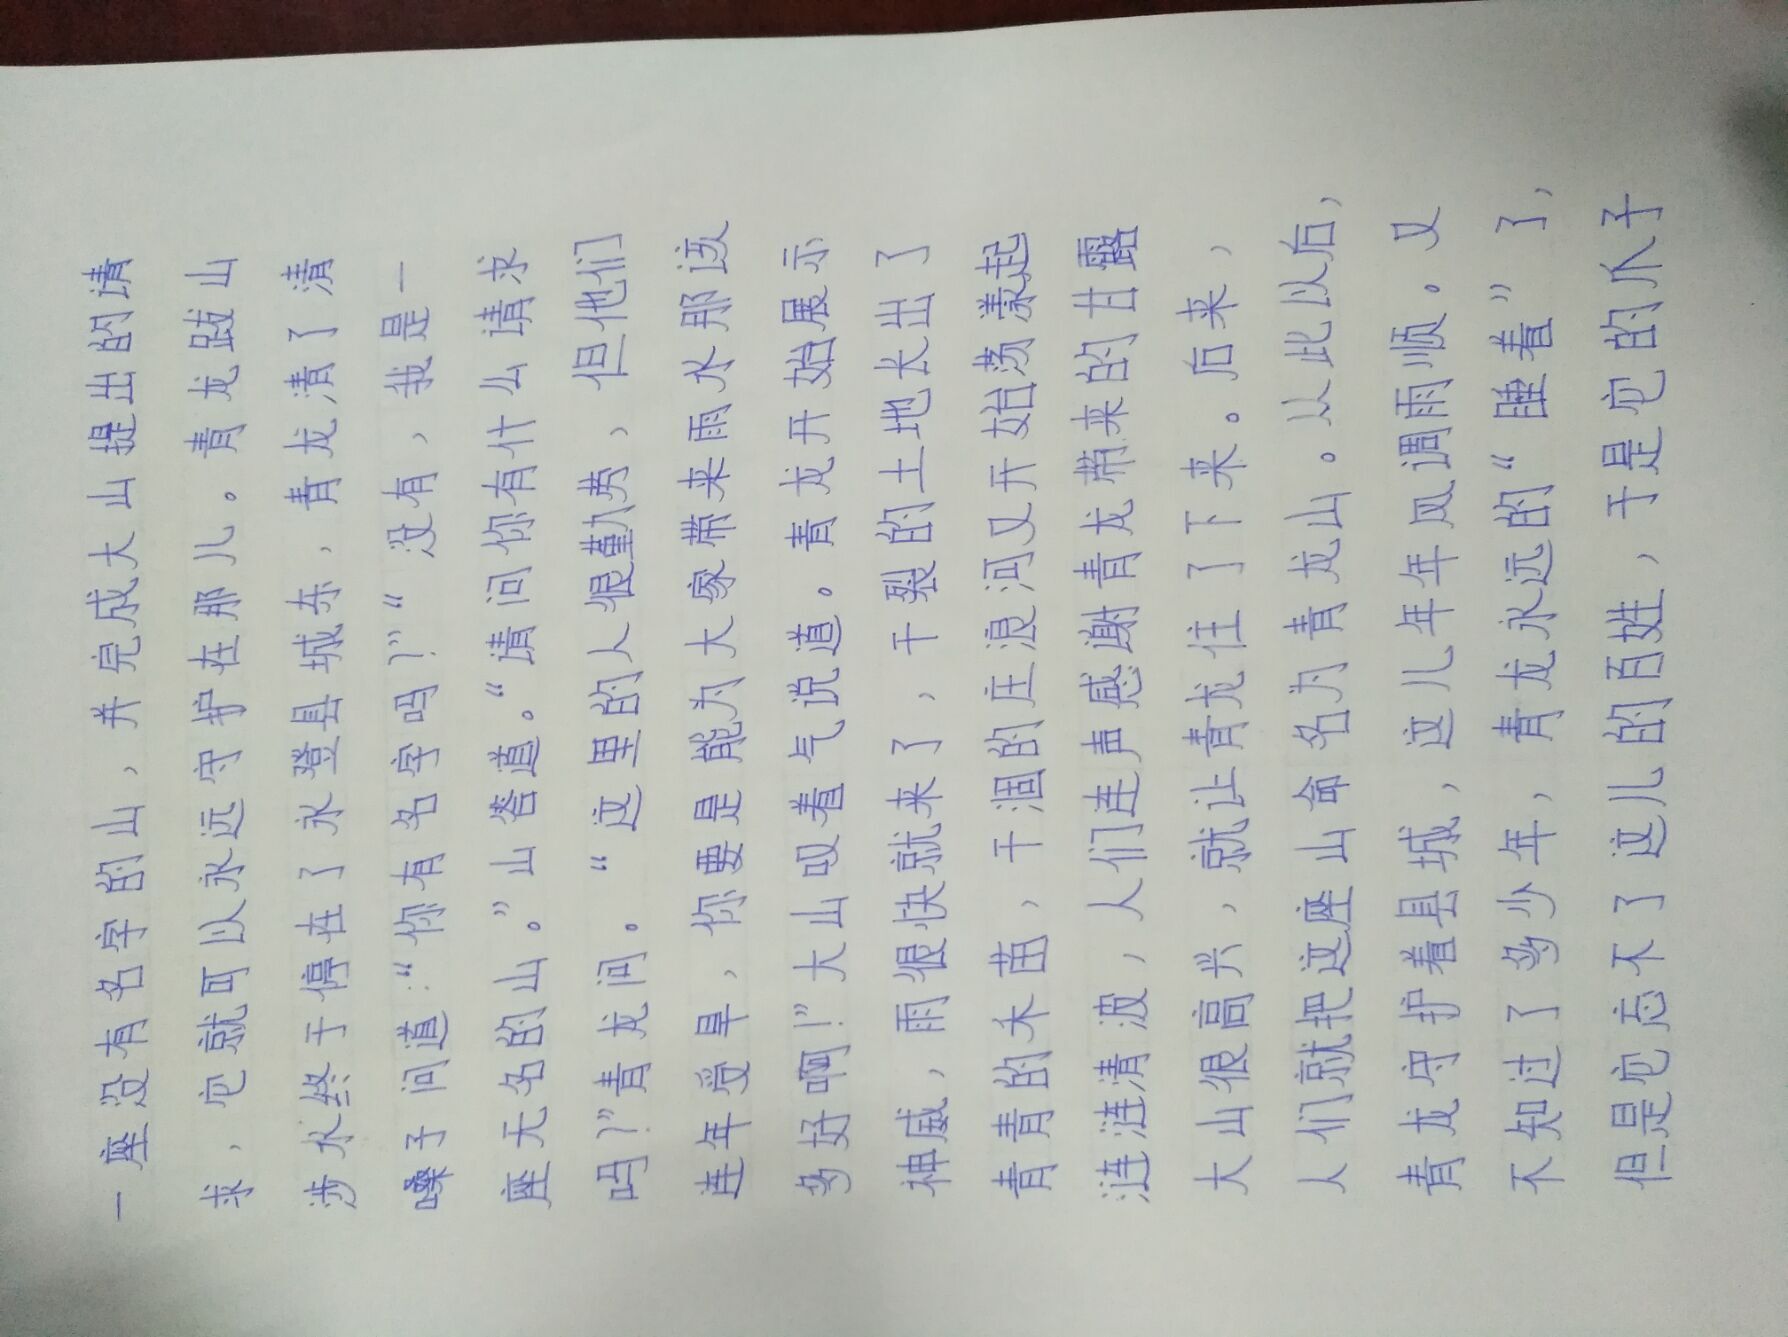 一座没有名字的山，并完成大山提出的请
求，它就可以永远守护在那儿。青龙跋山
涉水终于停在了永登县城东，青龙清了清
嗓子问道：“你有名字吗？”“没有，我是一
座无名的山。”山答道。“请问你有什么请求
吗？”青龙问。“这里的人很勤劳，但他们
连年受旱，你要是能为大家带来雨水那该
多好啊！”大山叹着气说道。青龙开始展示
神威，雨很快就来了，干裂的土地长出了
青青的禾苗，干涸的庄浪河又开始荡漾起
涟涟清波，人们连声感谢青龙带来的甘露，
大山很高兴，就让青龙住了下来。后来，
人们就把这座山命名为青龙山。从此以后，
青龙守护着县城，这儿年年风调雨顺。又
不知过了多少年，青龙永远的“睡着”了，
但是它忘不了这儿的百姓，于是它的爪子